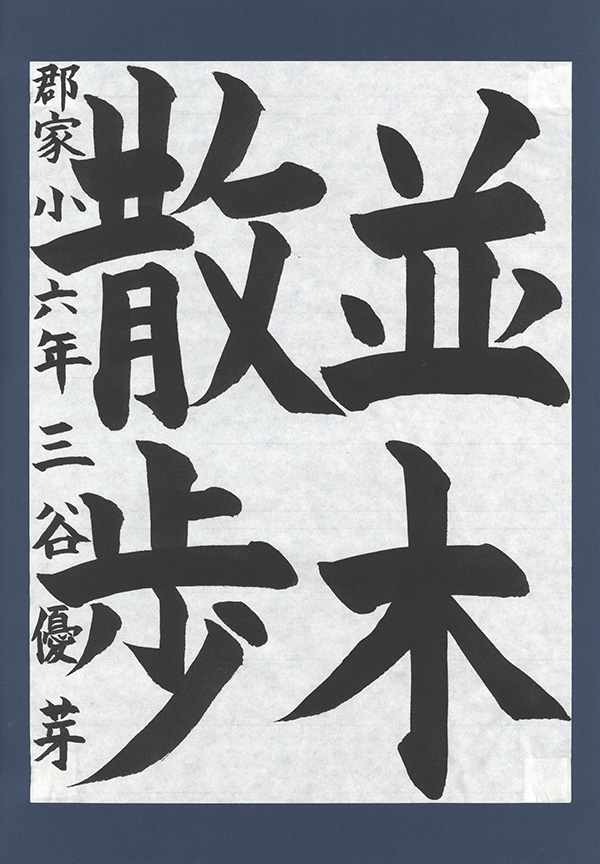 並木
散歩
郡家小六年三谷優芽